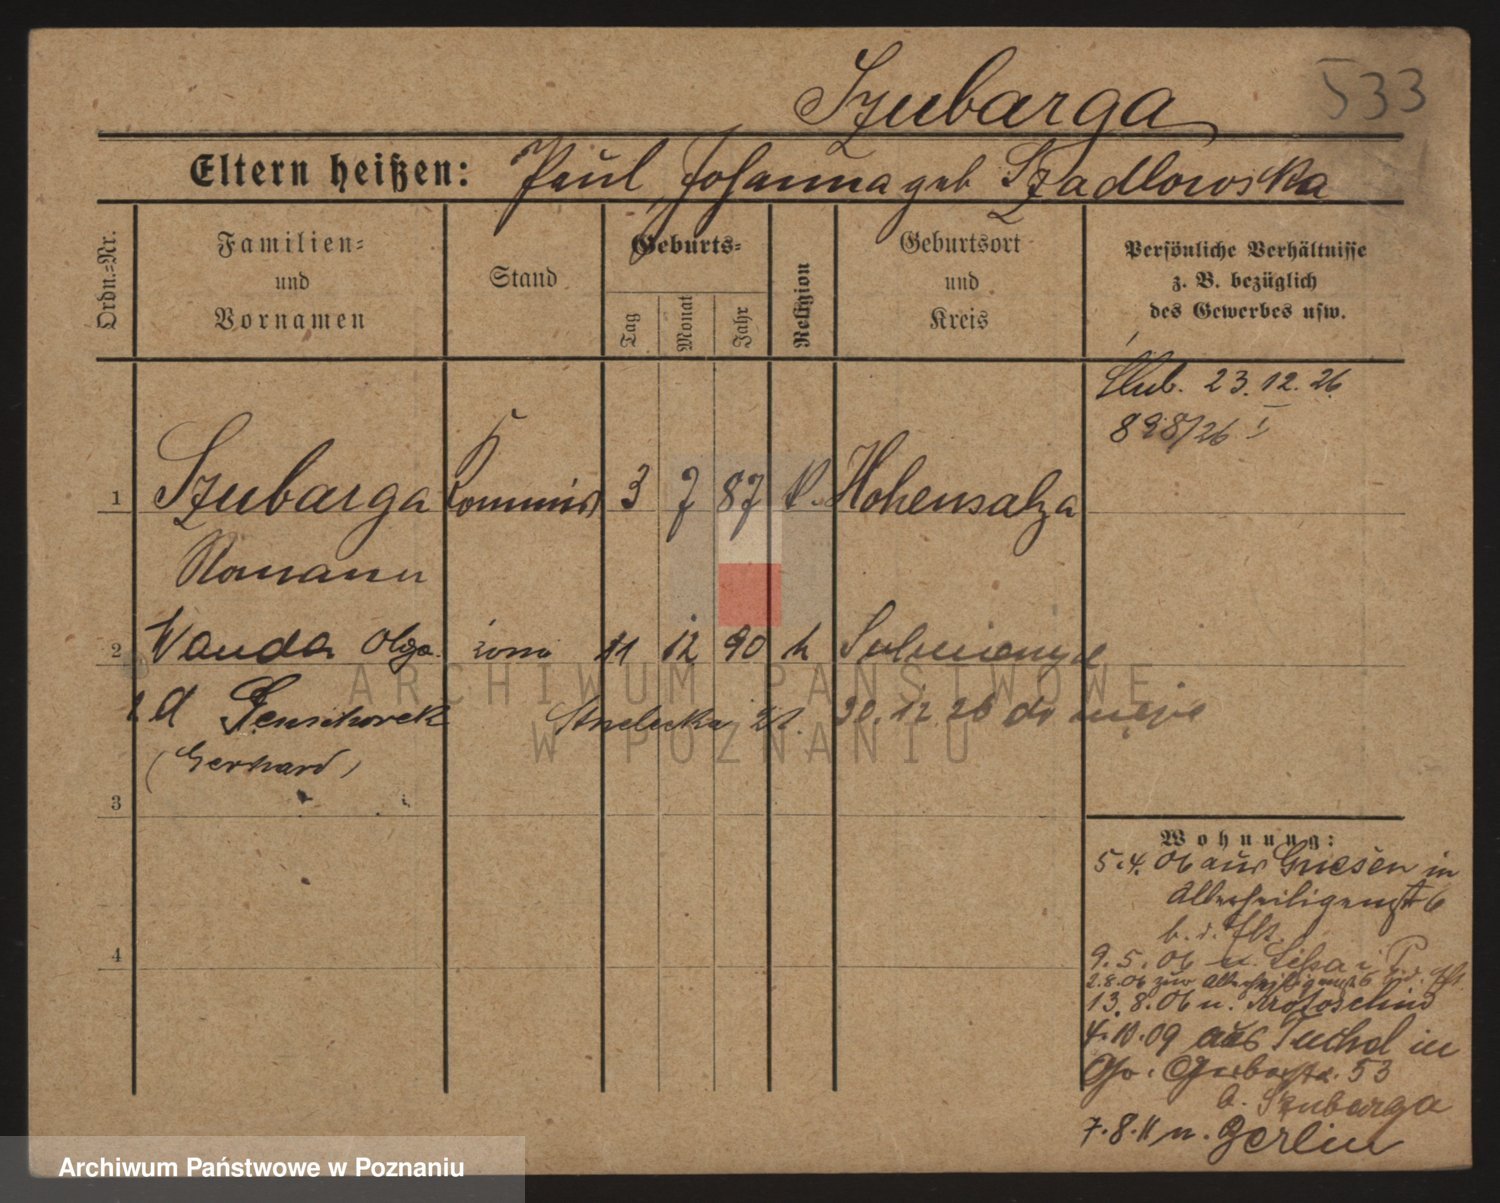 533
Szubarga
Eltern heißen: Paul Johanna geb Szadlowska
Ordn.=Nr.
Familien=
und
Vornamen
Stand
Geburts=
Tag
Monat
Jahr
Religion
Geburtsort
und
Kreis
Persönliche Verhältnisse
z. B. bezüglich
des Gewerbes usw.
Ślub. 23.12.26
898/26 I
1 Szubarga Kommis 3 7 87 k. Hohensalza
Romann
2 Wanda Olga żona 11 12 90 k
z d
(Gerhard)
Strzelecka 21. 30.12.26 do męża
3
4
Wohnung:
5.4.06 aus Gnesen in
Allerheiligenst 6
b. d. Elt.
9.5.06 n. Lissa i. P
2.8.06 zur Allerheiligenst 6 b. d. Elt.
13.8.06 n. Krotoschin
4.11.09 aus Tuchel in
53
b. Szubarga
7.8.11 n. Berlin
ARCHIWUM PAŃSTWOWE
W POZNANIU
Archiwum Państwowe w Poznaniu